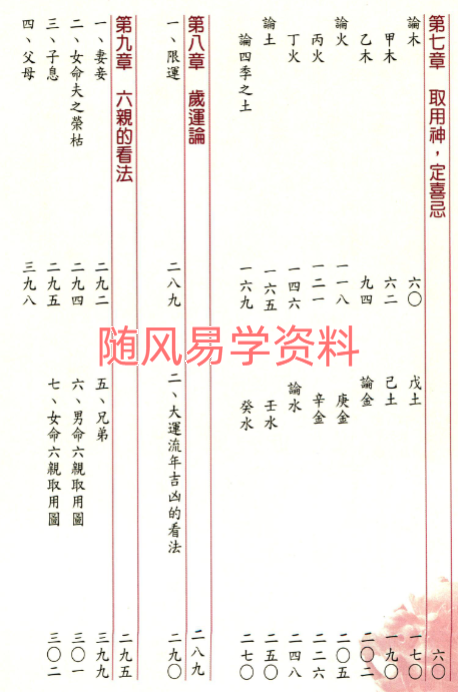 第七章 取用神，定喜忌 六〇
論木 六〇 戊土 一七〇
甲木 六二 己土 一九〇
乙木 九四 論金 二〇二
論火 一一八 庚金 二〇五
丙火 一二一 辛金 二二六
丁火 一四六 論水 二四八
論土 一六五 壬水 二五〇
論四季之土 一六九 癸水 二七〇
第八章 歲運論 二八九
一、限運 二八九 二、大運流年吉凶的看法 二九〇
第九章 六親的看法 二九五
一、妻妾 二九二 五、兄弟 三九九
二、女命夫之榮枯 二九四 六、男命六親取用圖 三〇一
三、子息 二九五 七、女命六親取用圖 三〇二
四、父母 三九八
随风易学资料